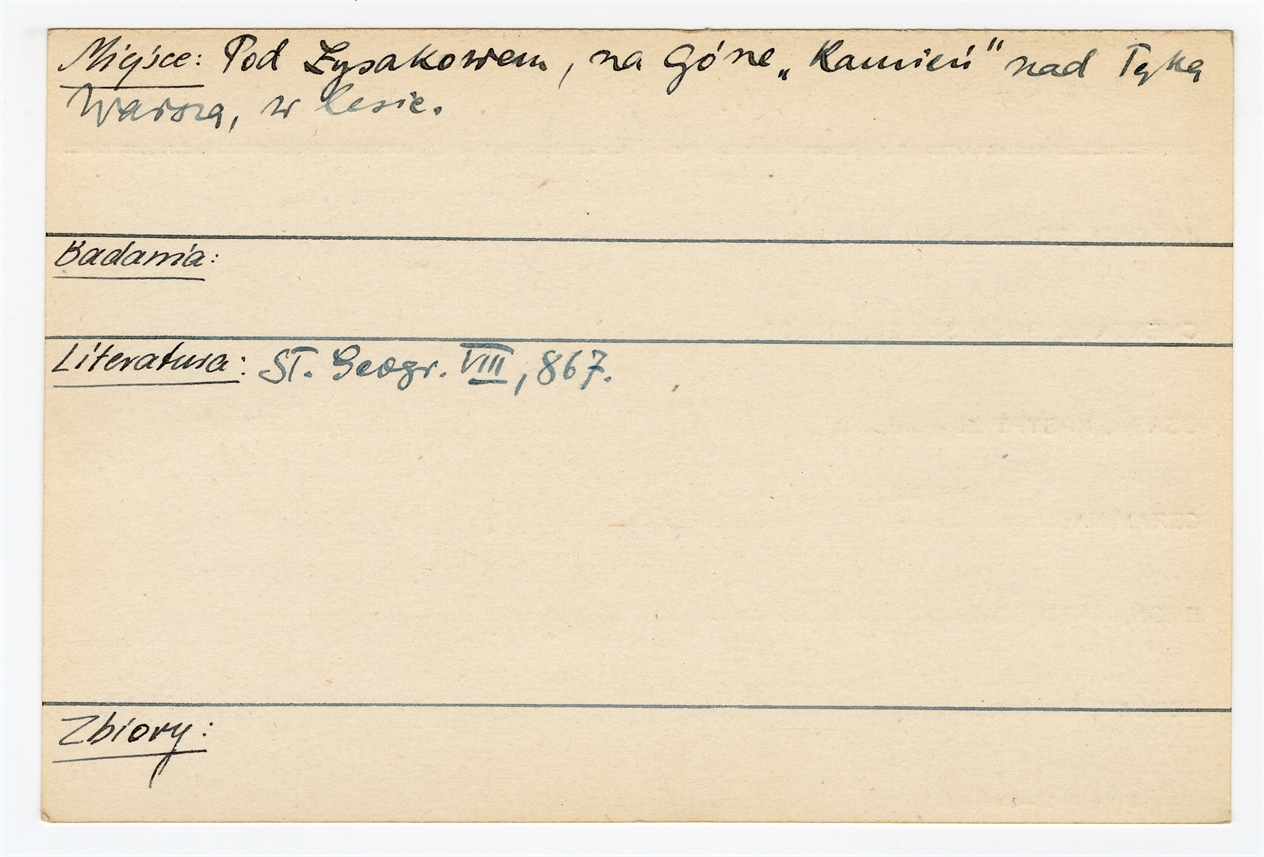 Miejsce: Pod Łysakowem, na Górze „Kamień" nad łąką
Warszą, w lesie.
Badania:
Literatura: Sł. Geogr. VIII, 867.
Zbiory: